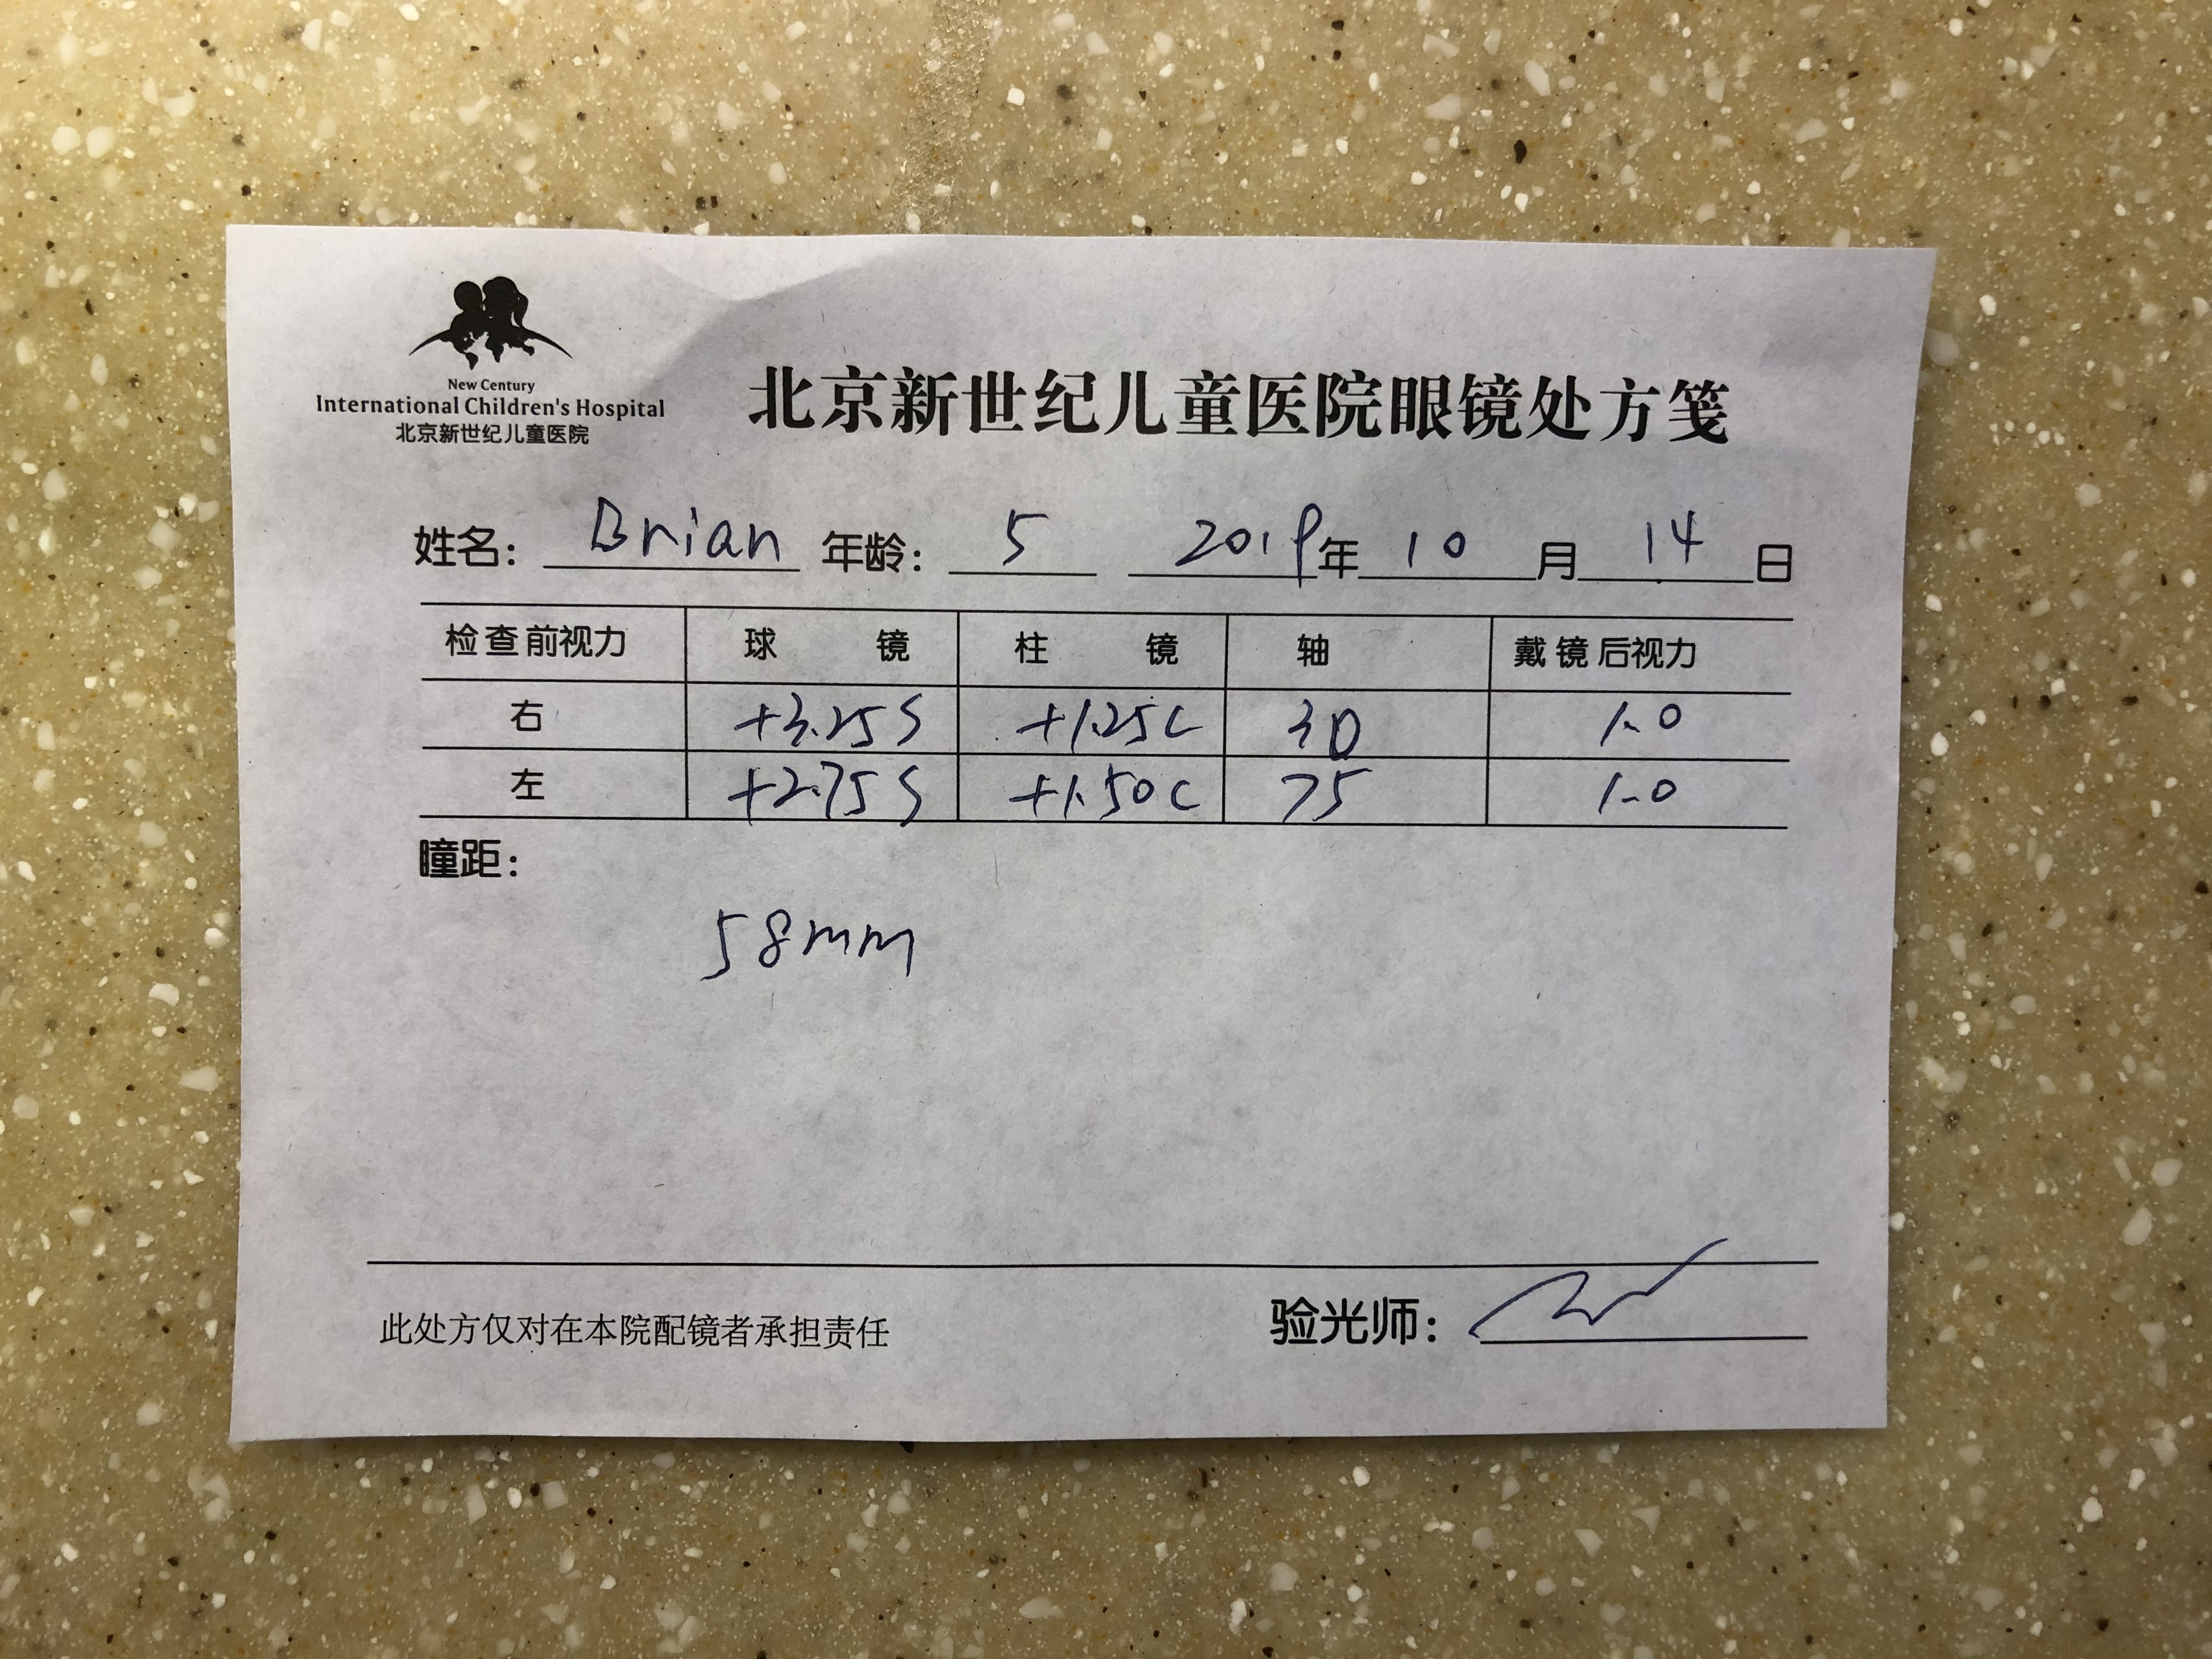 New Century
International Children's Hospital
北京新世纪儿童医院
北京新世纪儿童医院眼镜处方笺
姓名： Brian 年龄： 5 2019年 10 月 14 日
检查前视力 球 镜 柱 镜 轴 戴镜后视力
右 +3.25S +1.25C 30 1.0
左 +2.75S +1.50C 75 1.0
瞳距：
58mm
此处方仅对在本院配镜者承担责任 验光师：